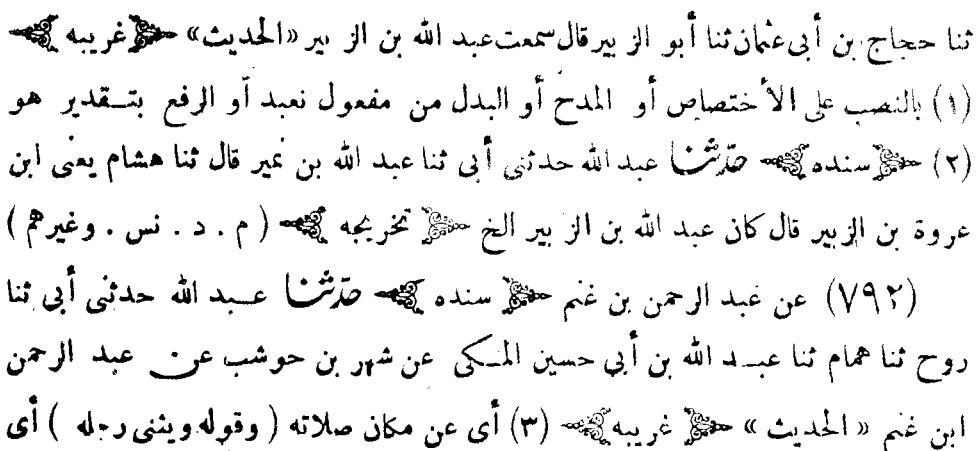 ثنا حجاج بن أبى عثمان ثنا أبو الزبير قال سمعت عبد الله بن الزبير «الحديث» غريبه
(١) بالنصب على الأختصاص أو المدح أو البدل من مفعول نعبد أو الرفع بتقدير هو
(٢) سنده حدثنا عبد الله حدثنى أبى ثنا عبد الله بن نمير قال ثنا هشام يعنى ابن
عروة بن الزبير قال كان عبد الله بن الزبير الخ تخريجه (م . د . نس . وغيرهم)
(٧٩٢) عن عبد الرحمن بن غنم سنده حدثنا عبد الله حدثنى أبى ثنا
روح ثنا همام ثنا عبد الله بن أبى حسين المكى عن شهر بن حوشب عن عبد الرحمن
ابن غنم «الحديث» غريبه (٣) أى عن مكان صلاته (وقوله ويثنى رجله) أى